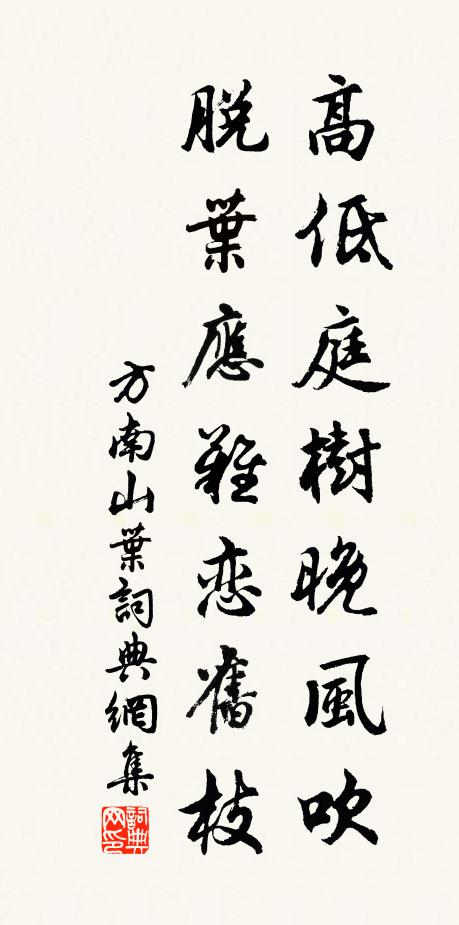 高低庭樹晚風吹
脫葉應難恋舊枝
方南山葉詞典網集
詞典网印